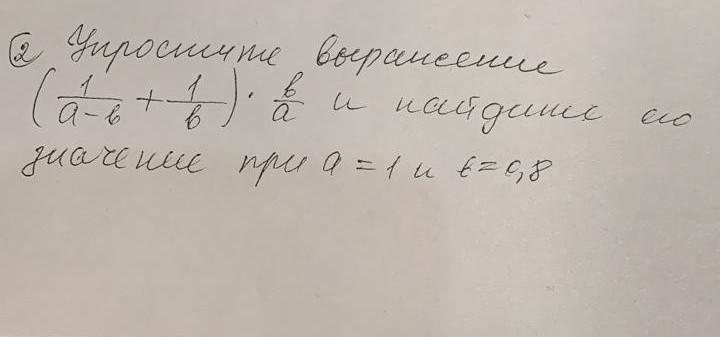 ② Упростите выражение
(1/(а-в) + 1/в) · в/а и найдите его
значение при а = 1 и в = 0,8